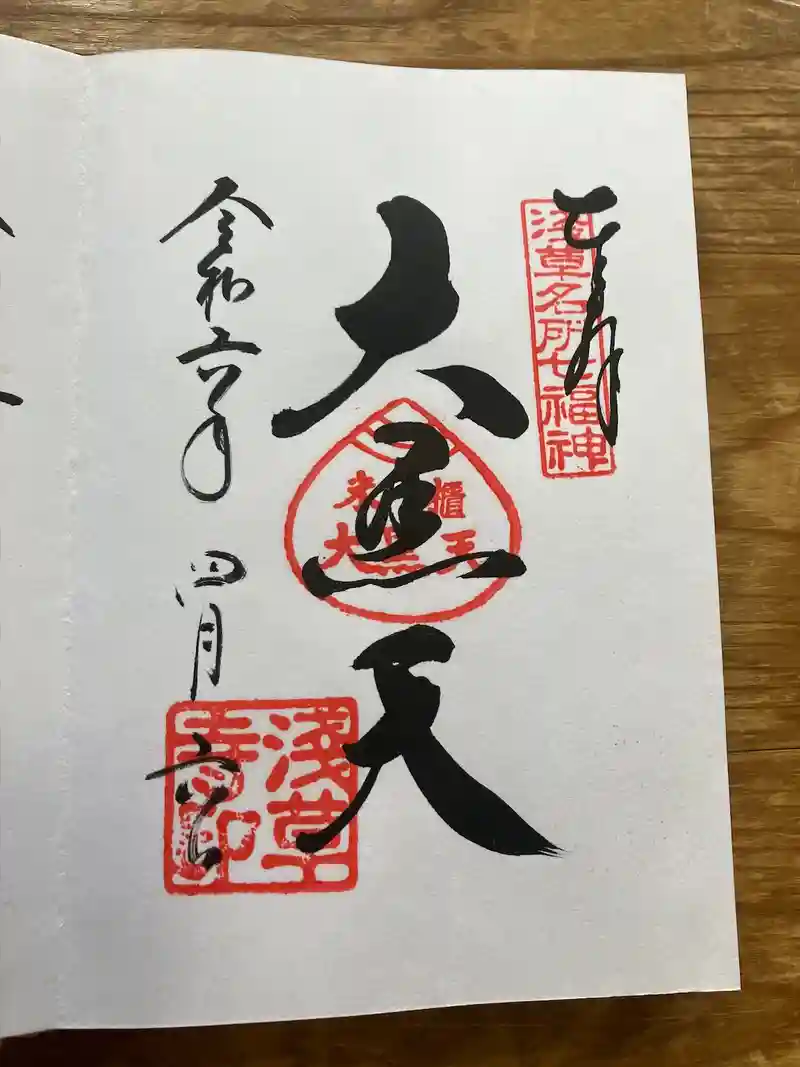 奉拝
浅草名所七福神
大黒天
米櫃
大黒天
令和六年 四月 六日
浅草
寺印